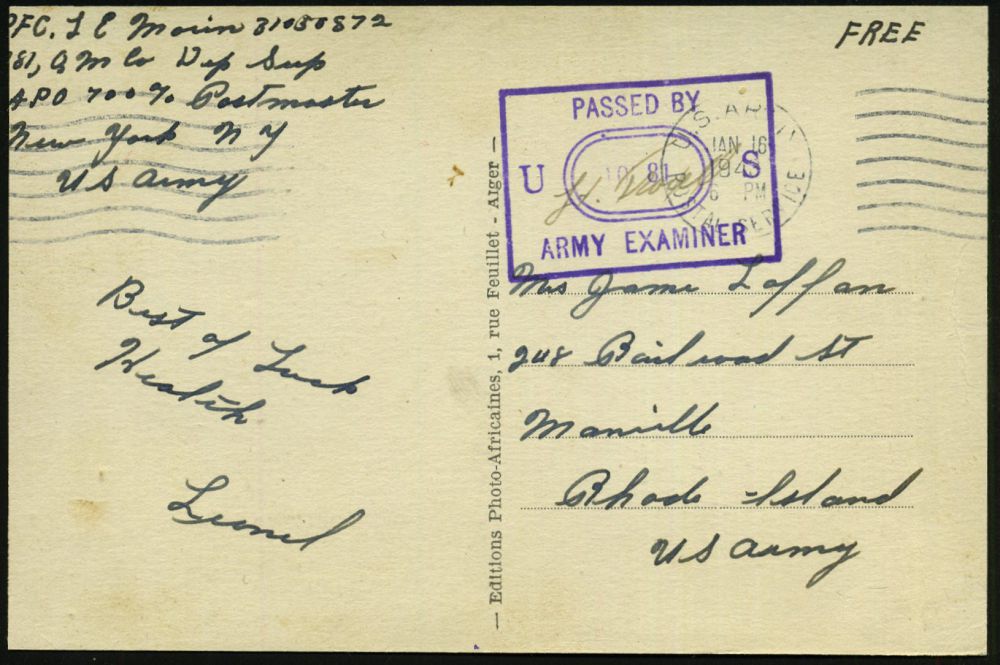 PFC. L E Morin 31030872
181, Q M Co Dep Sup
APO 700 % Postmaster
New York N Y
US Army
FREE
PASSED BY
U S
ARMY EXAMINER
U.S. ARMY
JAN 16
194
6 PM
POSTAL SERVICE
Best of Luck
Health
Leonel
— Editions Photo-Africaines, 1, rue Feuillet - Alger —
Mrs Jame Laffan
248 Railroad St
Manville
Rhode Island
US Army